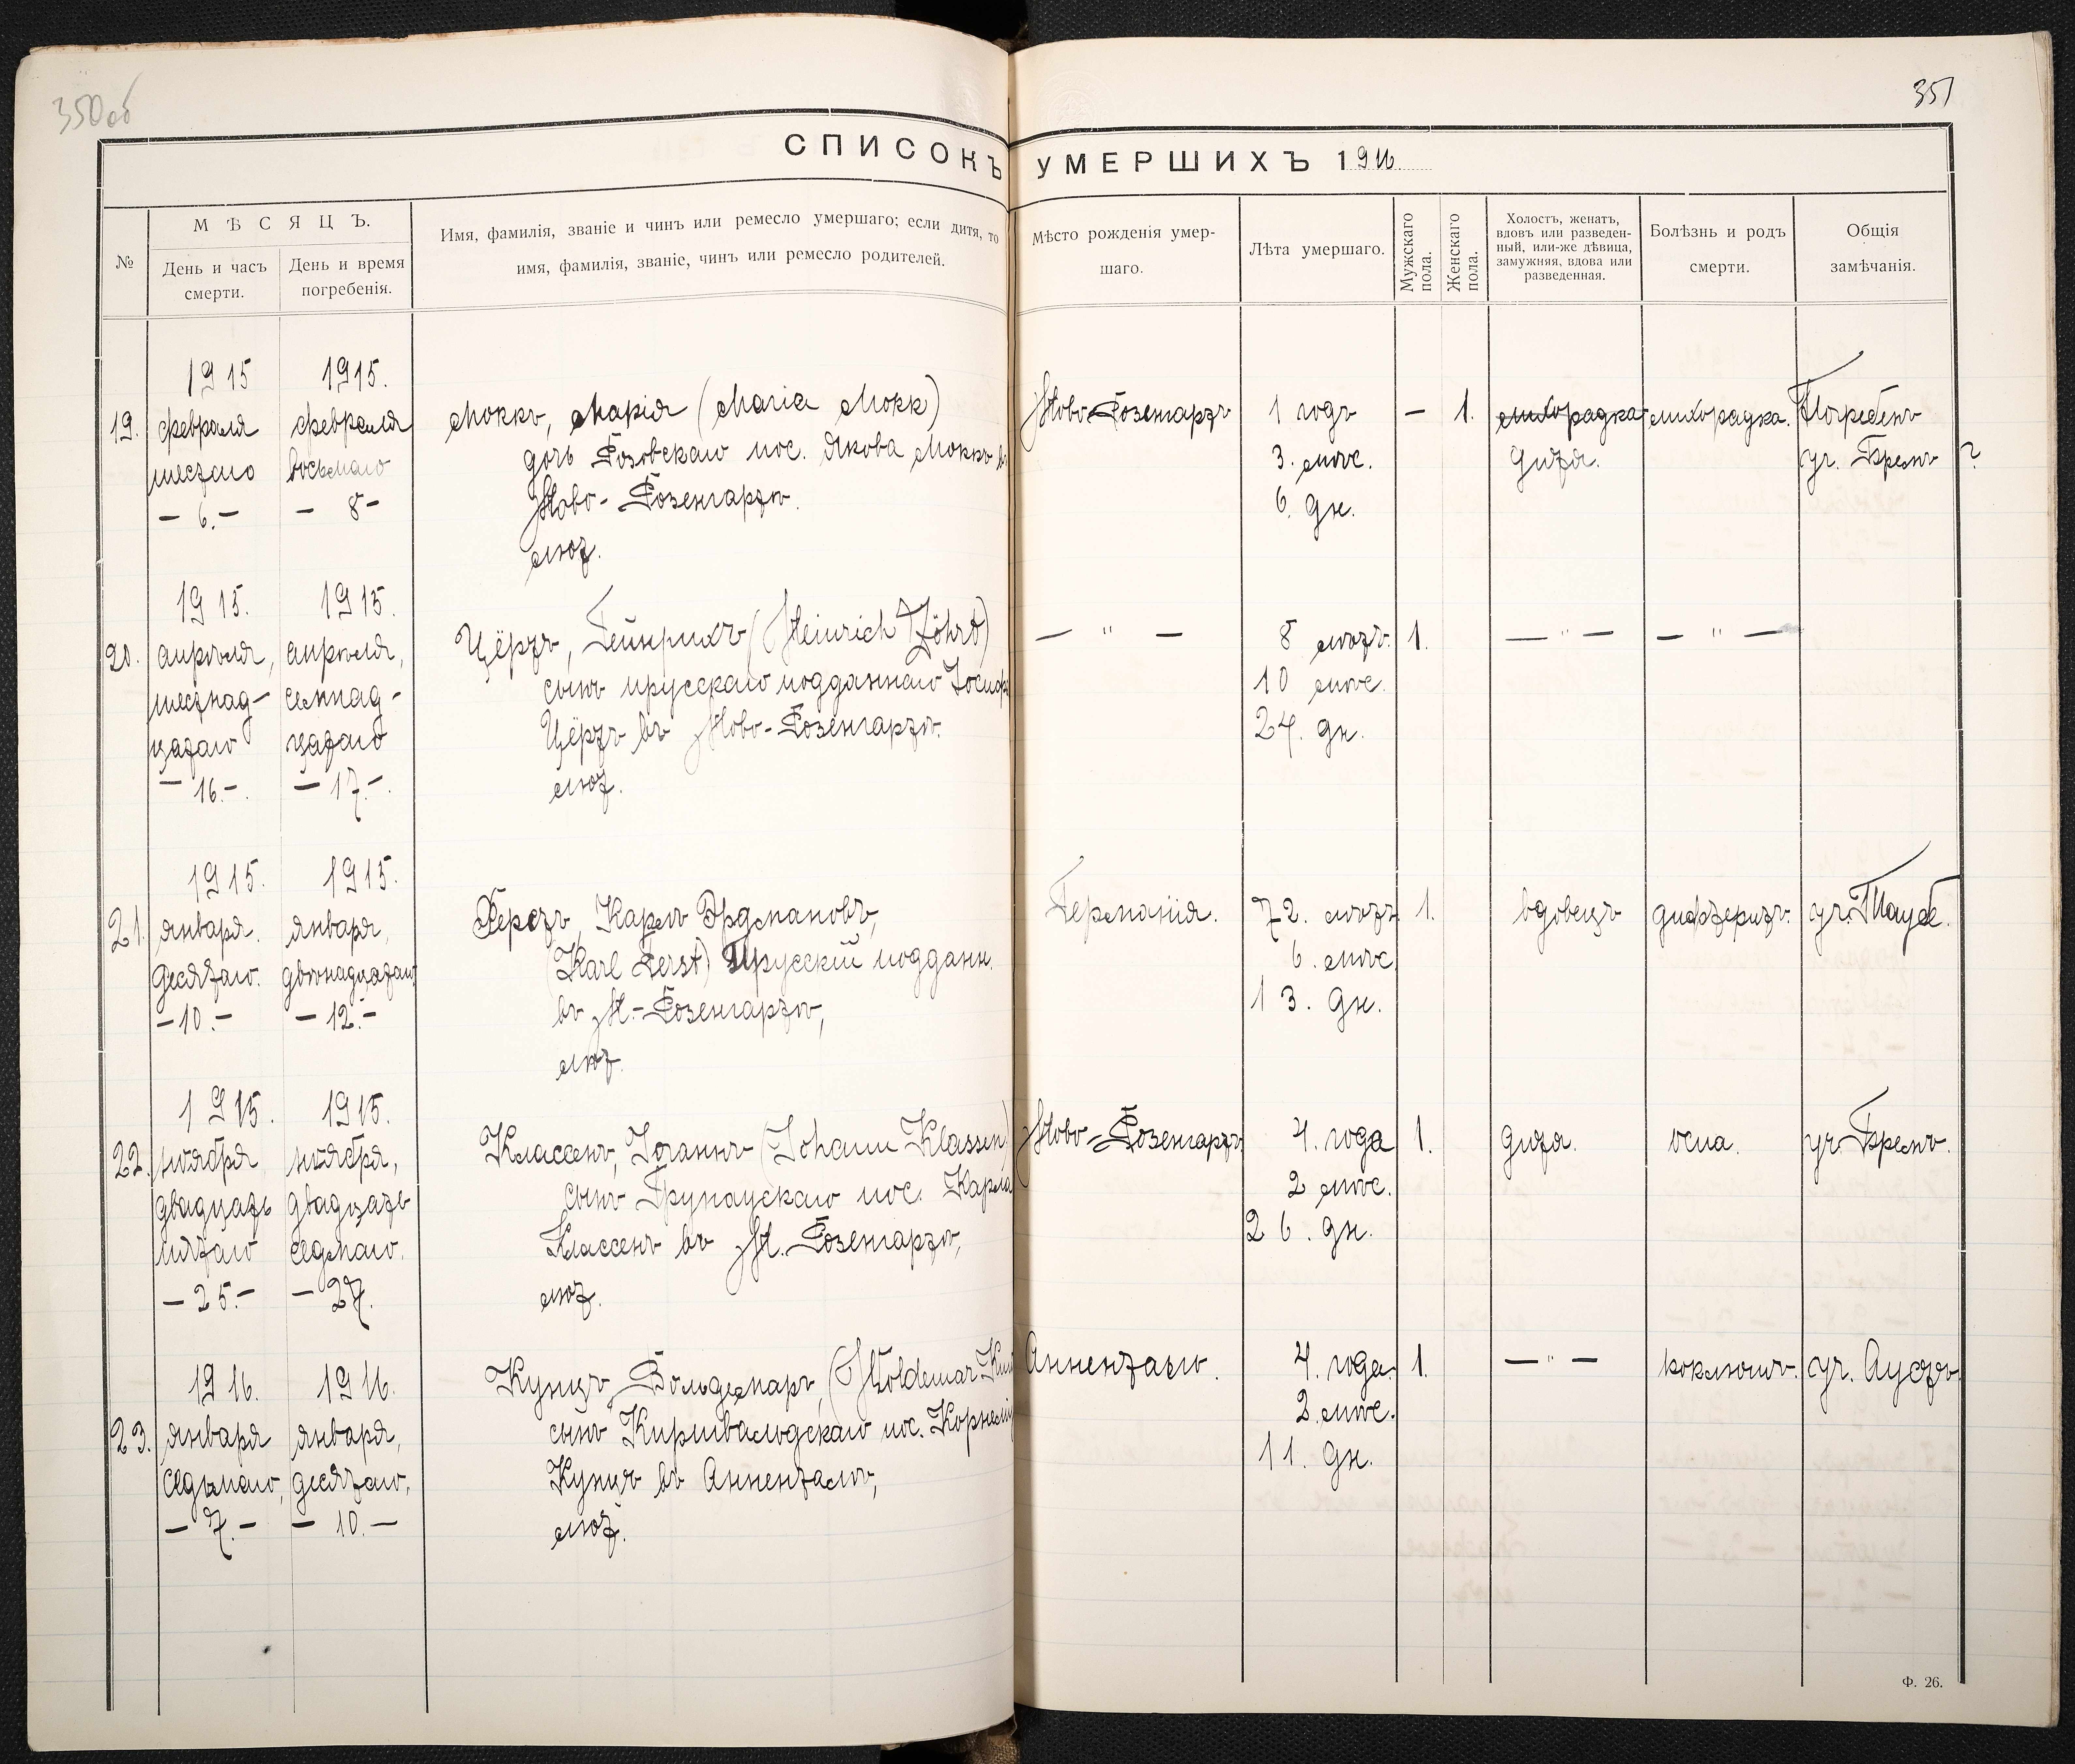 350 об
351
СПИСОКЪ УМЕРШИХЪ 1916
№
МѢСЯЦЪ.
День и часъ смерти.
День и время погребенія.
Имя, фамилія, званіе и чинъ или ремесло умершаго; если дитя, то
имя, фамилія, званіе, чинъ или ремесло родителей.
Мѣсто рожденія умер-
шаго.
Лѣта умершаго.
Мужскаго пола.
Женскаго пола.
Холостъ, женатъ,
вдовъ или разведен-
ный, или-же дѣвица,
замужняя, вдова или
разведенная.
Болѣзнь и родъ
смерти.
Общія
замѣчанія.
19.
1915
февраля
шестаго
- 6. -
1915.
февраля
восьмаго
- 8 -
Моккъ, Марія (Maria Mokk)
дочь Розовскаго пос. Якова Моккъ въ
Ново-Розенгартѣ.
лют.
Ново-Розенгартъ
1 годъ
3. мѣс.
6. дн.
-
1.
лихорадка
дитя.
лихорадка.
Погребенъ
уч. Бремъ
?
20.
1915.
апрѣля,
шестнад-
цатаго
- 16. -
1915.
апрѣля,
семнад-
цатаго
- 17. -
Цёртъ, Гейнрихъ (Heinrich Zöhrt)
сынъ прусскаго подданнаго Іосифа
Цёртъ въ Ново-Розенгартѣ.
лют.
- " -
8 лѣтъ.
10 мѣс.
24. дн.
1.
- " -
- " -
21.
1915.
января.
десятаго.
- 10. -
1915.
января,
двѣнадцатаго
- 12. -
Ферстъ, Карлъ Эрдмановъ,
(Karl Ferst) Прусскій подданн.
въ Н.-Розенгартѣ,
лют.
Германія.
72. лѣтъ
6. мѣс.
13. дн.
1.
вдовецъ
дифтеритъ.
уч. Таубе.
22.
1915.
ноября
двадцать
пятаго
- 25. -
1915.
ноября,
двадцать
седмаго.
- 27.
Классенъ, Іоганнъ (Johann Klassen)
сынъ Грунаускаго пос. Карла
Классенъ въ Н. Розенгартѣ,
лют.
Ново-Розенгартъ
4. года
2 мѣс.
26. дн.
1.
дитя.
оспа.
уч. Бремъ.
23.
1916.
января
седьмаго,
- 7. -
1916.
января,
десятаго,
- 10. -
Кунцъ, Вольдемаръ, (Woldemar
сынъ Киршвальдскаго пос.
Кунцъ въ Анненталѣ,
лют.
Анненталь.
4. года.
2. мѣс.
11. дн.
1.
- " -
коклюшъ.
уч. Аустъ.
Ф. 26.